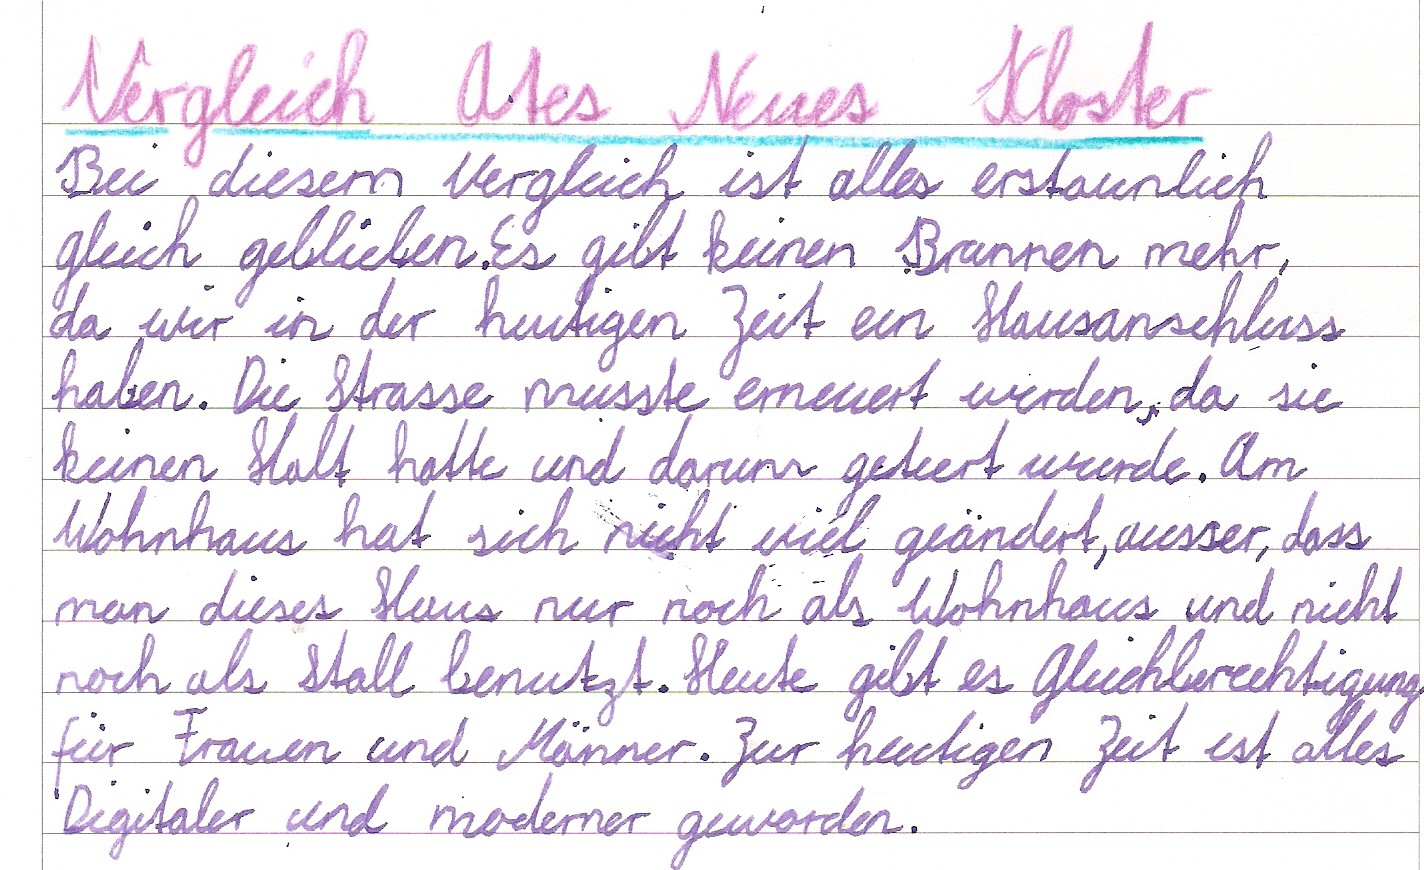 Vergleich Altes Neues Kloster
Bei diesem Vergleich ist alles erstaunlich
gleich geblieben. Es gibt keinen Brunnen mehr,
da wir in der heutigen Zeit ein Hausanschluss
haben. Die Strasse musste erneuert werden, da sie
keinen Halt hatte und darum geteert wurde. Am
Wohnhaus hat sich nicht viel geändert, ausser, dass
man dieses Haus nur noch als Wohnhaus und nicht
noch als Stall benutzt. Heute gibt es Gleichberechtigung
für Frauen und Männer. Zur heutigen Zeit ist alles
Digitaler und moderner geworden.